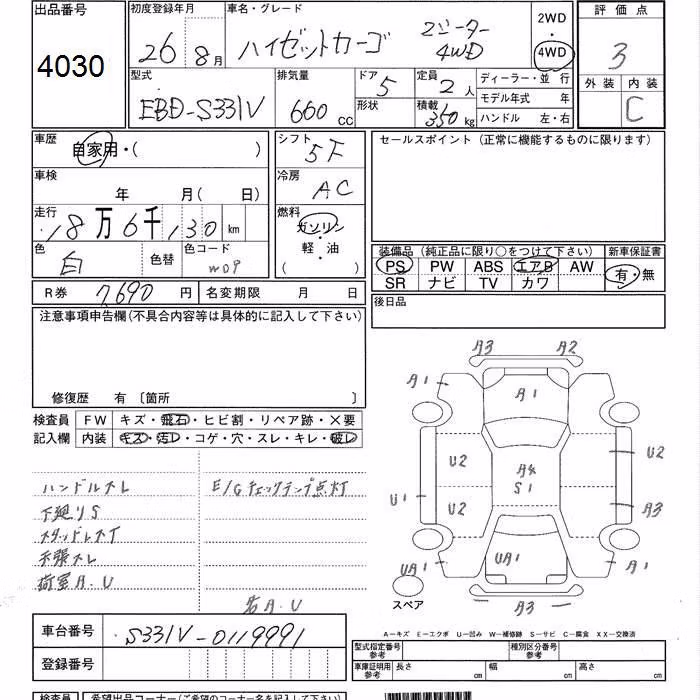 出品番号 初度登録年月 車名・グレード 2WD 評価点
4030 26年8月 ハイゼットカーゴ 2シーター 4WD 4WD 3
型式 排気量 ドア 定員 ディーラー・並行 外装 内装
EBD-S331V 660cc 5 2人 モデル年式 年 C
形状 積載 350kg ハンドル 左・右
車歴 自家用・( ) シフト 5F セールスポイント(正常に機能するものに限ります)
車検 年 月( 日) 冷房 AC
走行 18万6千130km 燃料 ガソリン・軽・油 ( )
色 白 色替 色コード W09
装備品(純正品に限り○をつけて下さい) 新車保証書
PS PW ABS エアB AW 有・無
SR ナビ TV カワ
R券 7,690円 名変期限 月 日 後日品
注意事項申告欄(不具合内容等は具体的に記入して下さい)
修復歴 有 〔箇所 〕
検査員 FW キズ・飛石・ヒビ割・リペア跡・×要
記入欄 内装 キズ・汚レ・コゲ・穴・スレ・キレ・破レ
ハンドルスレ E/Gチェックランプ点灯
下廻りS
スタッドレスT
天張スレ
荷室A.U
若A.U
A3 A2
A1 A1 A1
U2 A4 U2
S1
U1 U2 A3
UA1 UA1 A1
スペア A3
車台番号 S331V-0119991
A-キズ E-エクボ U-凹み W-補修跡 S-サビ C-腐食 XX-交換済
登録番号 型式指定番号 参考 種別区分番号 参考
車庫証明用 参考 長さ cm 幅 cm 高さ cm
検査員 希望出品コーナー(ご希望のコーナー名を記入